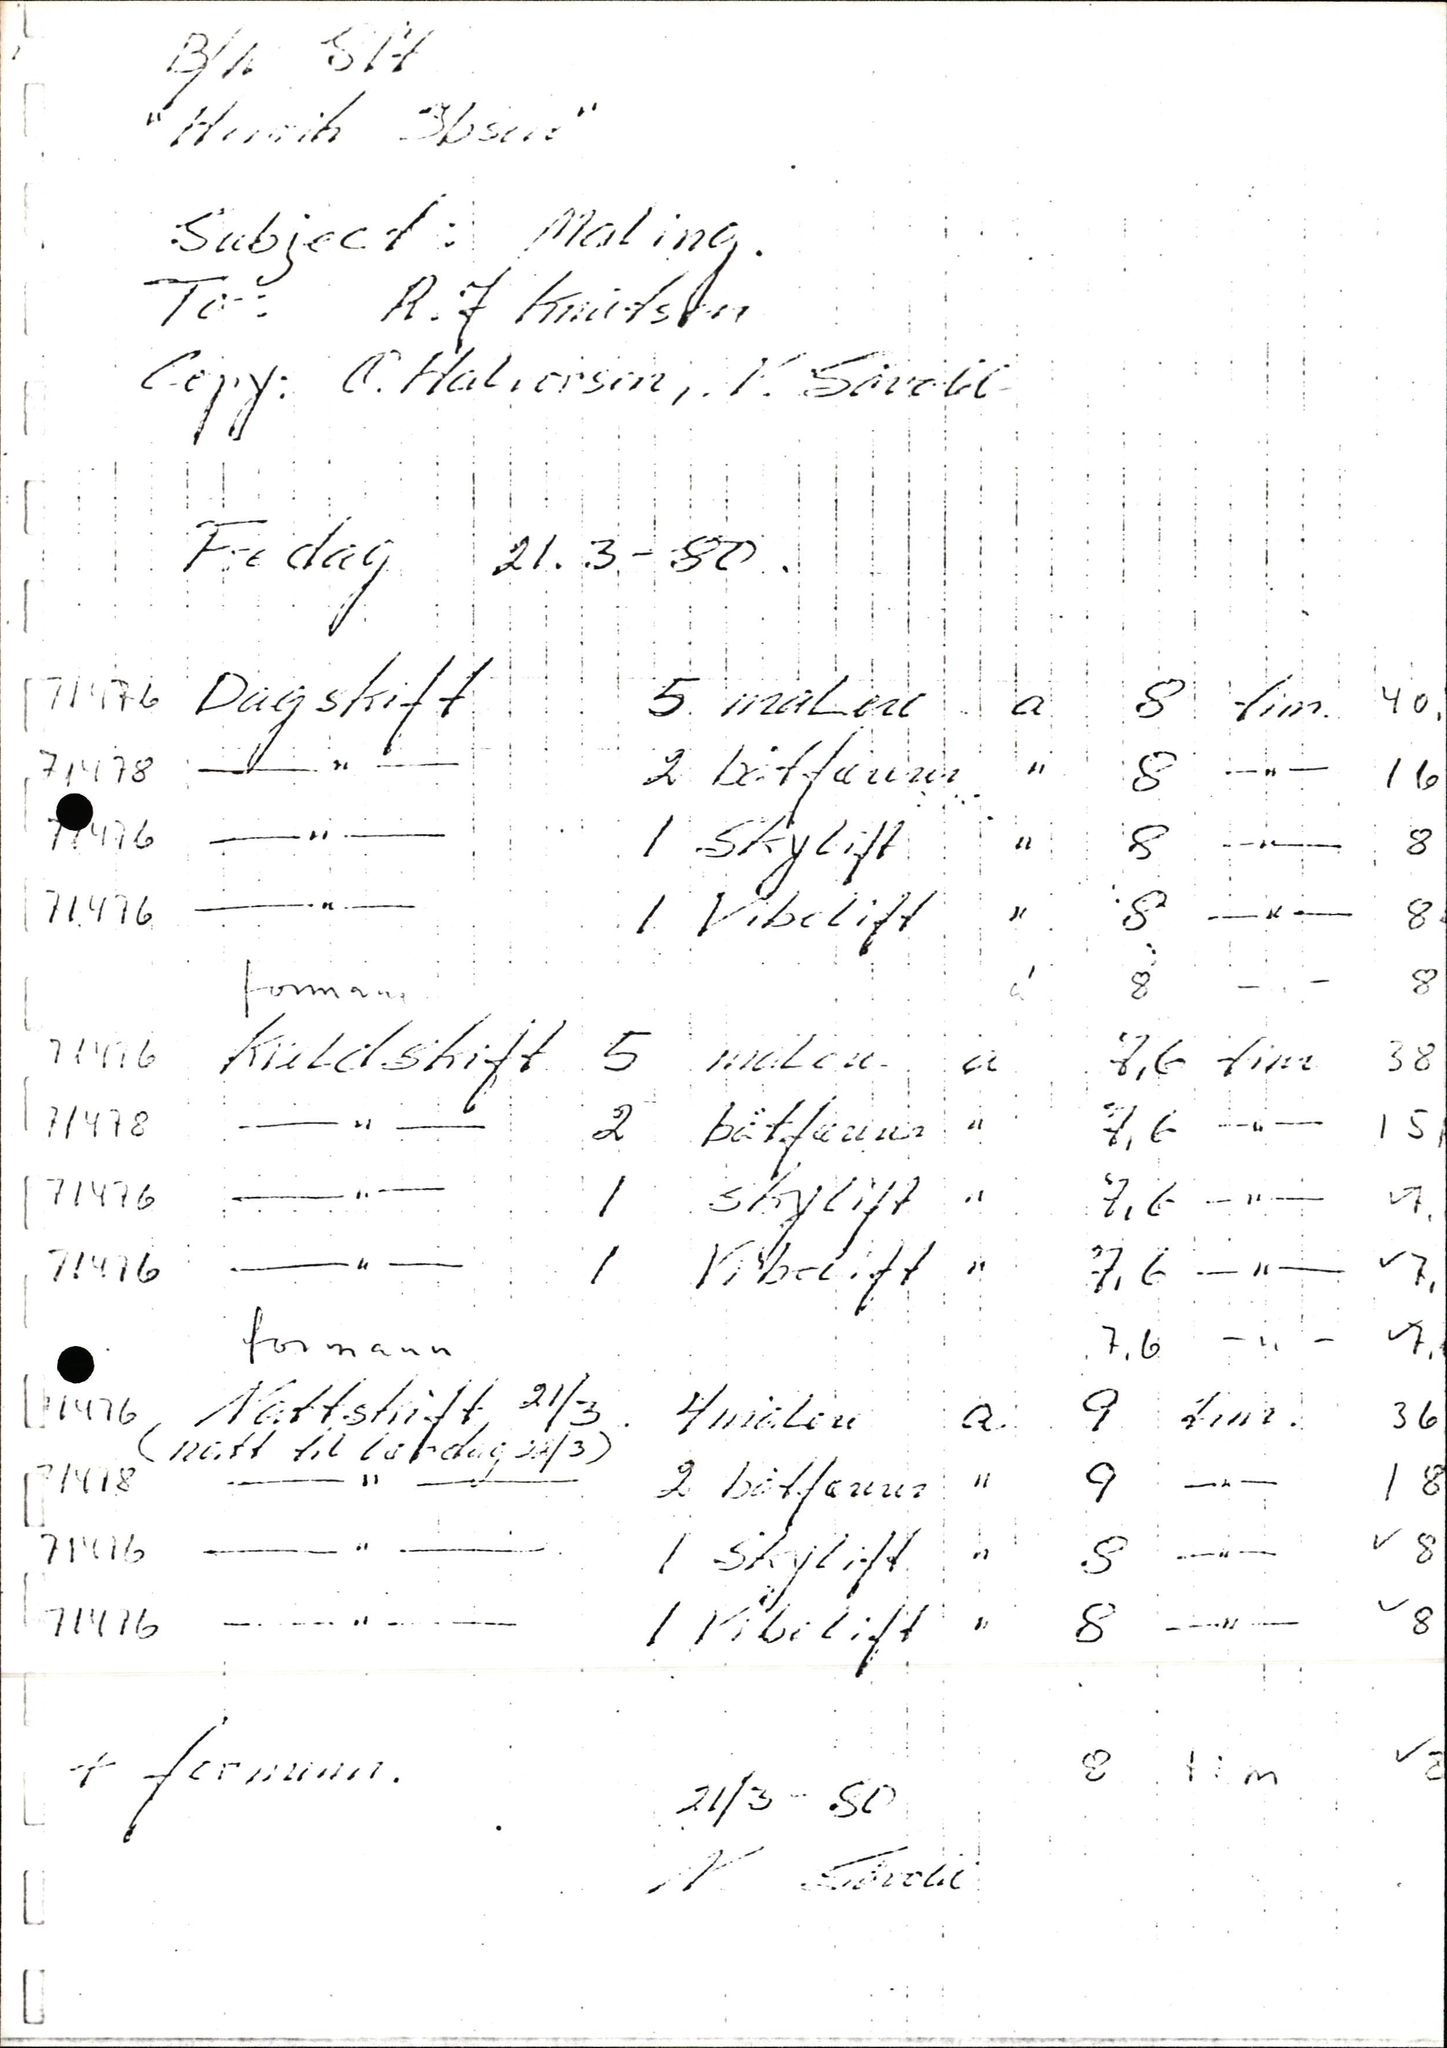 B/N 514
"Henrik Ibsen"
Subject: Maling.
To: R.F Knudsen
Copy: O. Halvorsen, N.
Fredag 21.3-80.
71476 Dagskift 5 malere a 8 tim. 40,
71478 —"— 2 båtfører " 8 —"— 16
71476 —"— 1 Skylift " 8 —"— 8
71476 —"— 1 Vibelift " 8 —"— 8
formann á 8 -"- 8
71476 Kveldskift 5 malere a 7,6 timer 38
71478 —"— 2 båtfører " 7,6 —"— 15,
71476 —"— 1 skylift " 7,6 —"— ✓7,
71476 —"— 1 Vibelift " 7,6 —"— ✓7,
formann 7,6 -"- ✓7,
71476 Nattskift 21/3. 4 malere a 9 timer. 36
(natt til lørdag 22/3)
71478 —"— 2 båtfører " 9 —"— 18
71476 —"— 1 Skylift " 8 —"— ✓8
71476 —"— 1 Vibelift " 8 —"— ✓8
+ formann. 8 tim ✓8
21/3-80
N